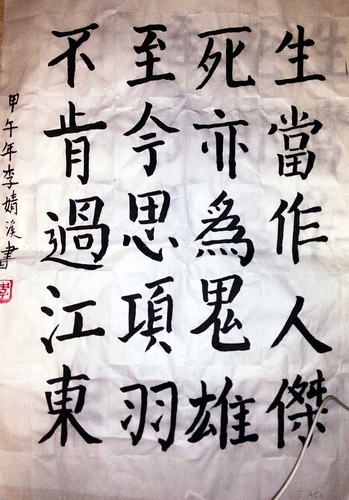 生當作人傑
死亦為鬼雄
至今思項羽
不肯過江東
甲午年李婧溪書